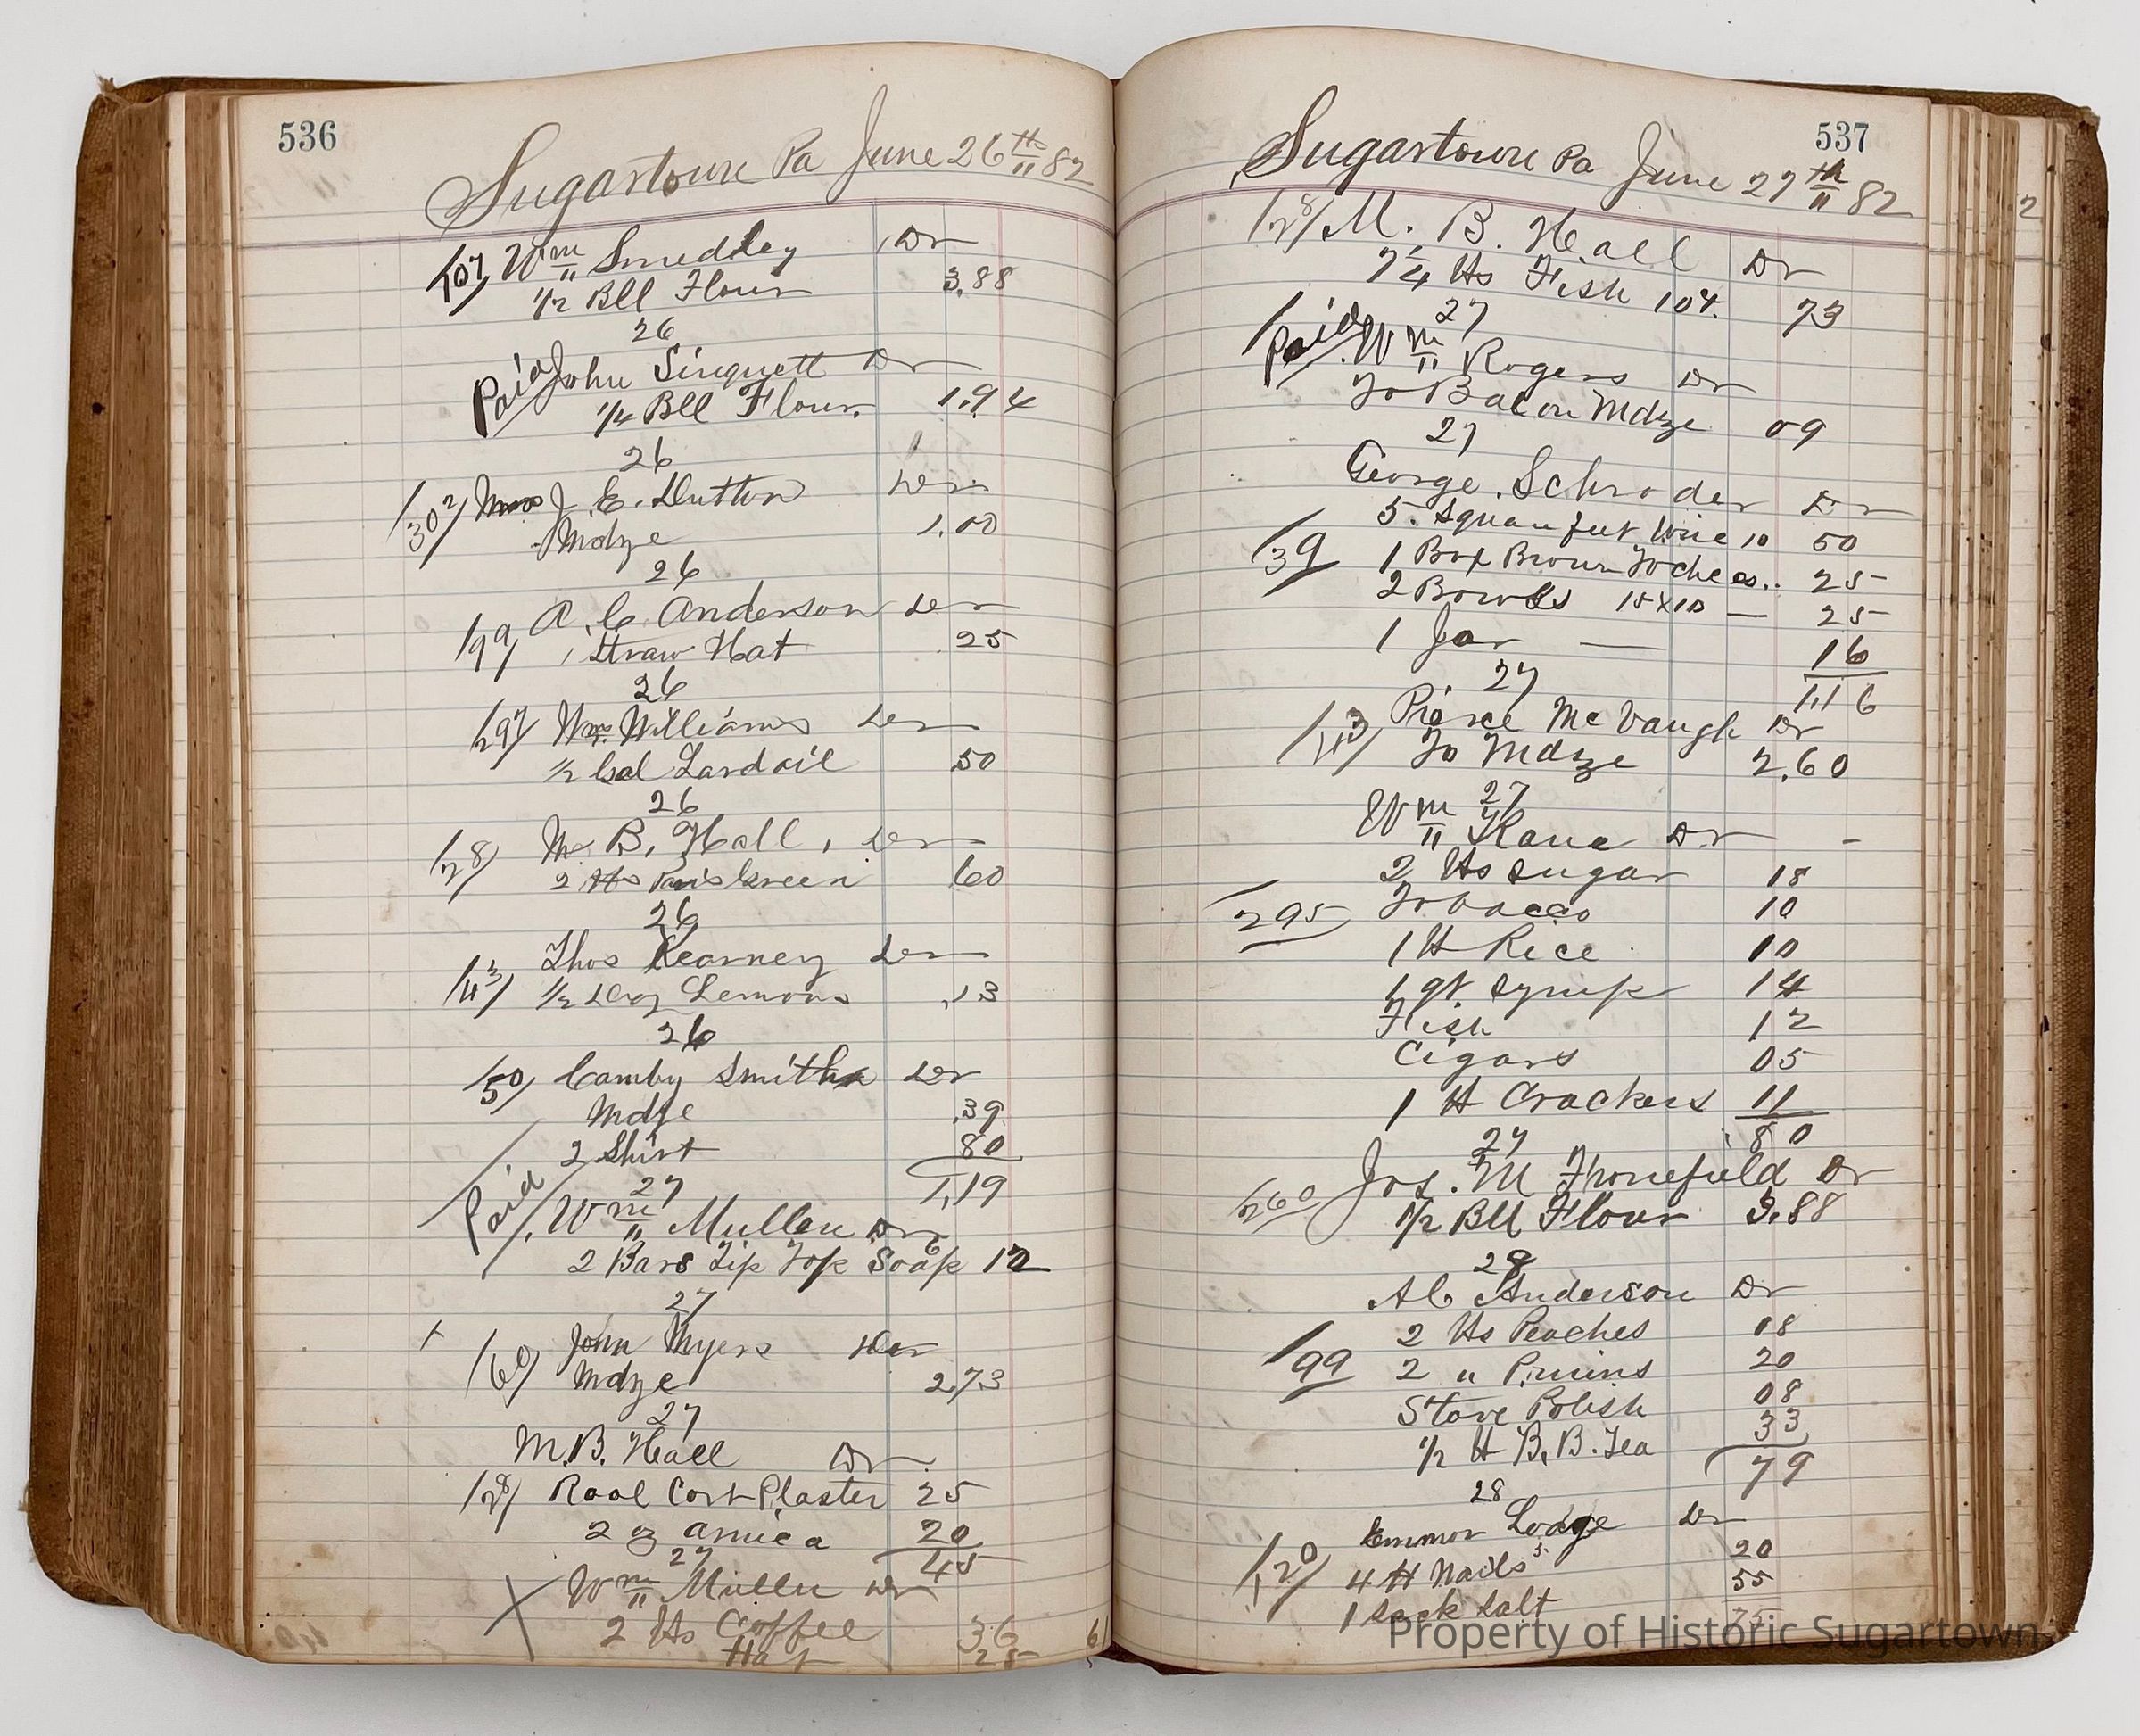 536
Sugartown Pa June 26th 82
107 Wm Smedley Dr
1/2 Bll Flour 3.88
26
Paid John Singuett Dr
1/4 Bll Flour. 1.94
26
302 Mrs J. E. Dutton Dr
Mdze 1.00
26
199 A. C. Anderson Dr
1 Straw Hat 25
26
297 Wm. Williams Dr
1/2 Gal Lardoil 50
26
128 M. B. Hall, Dr
2 lbs Paris Green 60
26
143 Thos Kearney Dr
1/2 Doz Lemons .13
26
50 Camby Smith Dr
Mdze .39
2 Shirt 80
1,19
27
Paid Wm Mullen Dr
2 Bars Tip Top Soap 6 12
27
160 John Myers Dr
Mdze 2.73
27
M. B. Hall Dr
128 Plaster 25
2 oz arnica 20
45
27
Wm Mullen Dr
2 lbs Coffee 36
Hat 25
537
Sugartown Pa June 27th 82
128 M. B. Hall Dr
7 1/4 lbs Fish 10 73
27
Paid Wm Rogers Dr
To Bacon Mdze 09
27
George. Schroder Dr
5. Square feet Wire 10 50
39 1 Box Brown Toches.. 25
2 Bowls 15x10 — 25
1 Jar — 16
1,16
27
113 Pierce McVaugh Dr
To Mdze 2.60
27
Wm Kane Dr
2 lbs Sugar 18
295 Tobacco 10
1 lb Rice 10
1 qt. Syrup 14
Fish 12
Cigars 05
1 lb Crackers 11
80
27
260 Jos. M Fronefield Dr
1/2 Bll Flour 3.88
28
A C Anderson Dr
2 lbs Peaches 18
199 2 " Pruins 20
Stove Polish 08
1/2 lb B. B. Tea 33
79
28
Emmor Lodge Dr
120 4 lb Nails 5 20
1 Sack Salt 55
75
Property of Historic Sugartown